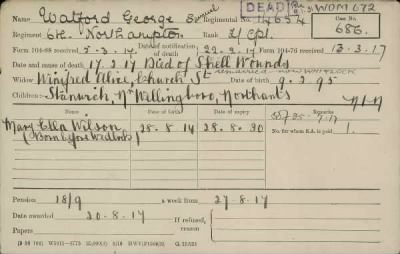 DEAD WOM 672
Name Watford George Samuel Regimental No. 14654 Case No.
Regiment 6th Northampton Rank L/Cpl. 686.
Form 104-88 received 5.3.17. Date of notification of death 22.2.17 Form 104-76 received 13.3.17
Date and cause of death 17.2.17 Died of Shell Wounds
remarried now
Widow Winifred Alice, Church St 9.2.95
Children Stanwick, Nr Wellingboro, Northants
Name Date of birth Date of expiry Remarks
Mary Ella Wilson 28.8.14 28.8.30 No. for whom S.A. is paid 1.
(Born before Wedlock)
Pension 18/9 a week from 27-8.17
Date awarded 20-8.17 If refused, reason
Papers